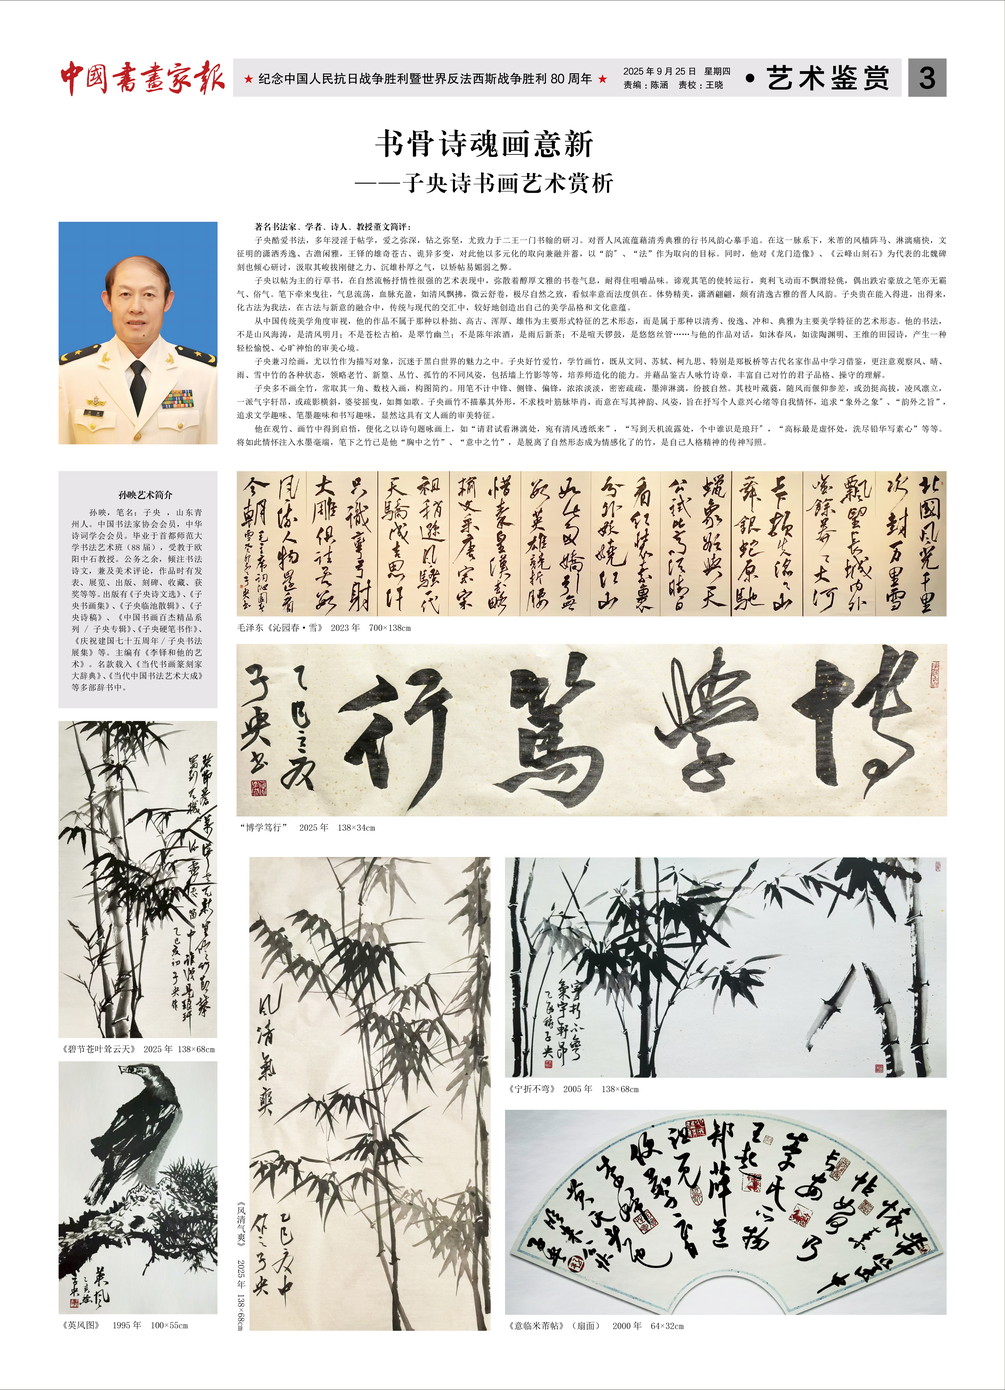 中國書畫家報
★ 纪念中国人民抗日战争胜利暨世界反法西斯战争胜利 80 周年 ★
2025 年 9 月 25 日 星期四
责编：陈涵 责校：王晓
• 艺术鉴赏
3
书骨诗魂画意新
——子央诗书画艺术赏析
著名书法家、学者、诗人、教授董文简评：
子央酷爱书法，多年浸淫于帖学，爱之弥深，钻之弥坚，尤致力于二王一门书翰的研习。对晋人风流蕴藉清秀典雅的行书风韵心摹手追。在这一脉系下，米芾的风樯阵马、淋漓痛快，文
征明的潇洒秀逸、古澹闲雅，王铎的雄奇苍古、诡异多变，对此他以多元化的取向兼融并蓄，以“韵”、“法”作为取向的目标。同时，他对《龙门造像》、《云峰山刻石》为代表的北魏碑
刻也倾心研讨，汲取其峻拔刚健之力、沉雄朴厚之气，以矫帖易媚弱之弊。
子央以帖为主的行草书，在自然流畅抒情性很强的艺术表现中，弥散着醇厚文雅的书卷气息，耐得住咀嚼品味。谛观其笔的使转运行，爽利飞动而不飘滑轻佻，偶出跌宕豪放之笔亦无霸
气、俗气。笔下牵来曳往，气息流荡，血脉充盈，如清风飘拂，微云舒卷，极尽自然之致，看似率意而法度俱在。体势精美，潇洒翩翩，颇有清逸古雅的晋人风韵。子央贵在能入得进，出得来，
化古法为我法，在古法与新意的融合中，传统与现代的交汇中，较好地创造出自己的美学品格和文化意蕴。
从中国传统美学角度审视，他的作品不属于那种以朴拙、高古、浑厚、雄伟为主要形式特征的艺术形态，而是属于那种以清秀、俊逸、冲和、典雅为主要美学特征的艺术形态。他的书法，
不是山风海涛，是清风明月；不是苍松古柏，是翠竹幽兰；不是陈年浓酒，是雨后新茶；不是喧天锣鼓，是悠悠丝管……与他的作品对话，如沐春风，如读陶渊明、王维的田园诗，产生一种
轻松愉悦、心旷神怡的审美心境。
子央兼习绘画，尤以竹作为描写对象，沉迷于黑白世界的魅力之中。子央好竹爱竹，学竹画竹，既从文同、苏轼、柯九思、特别是郑板桥等古代名家作品中学习借鉴，更注意观察风、晴、
雨、雪中竹的各种状态，领略老竹、新篁、丛竹、孤竹的不同风姿，包括墙上竹影等等，培养师造化的能力。并藉品鉴古人咏竹诗章，丰富自己对竹的君子品格、操守的理解。
子央多不画全竹，常取其一角、数枝入画，构图简约。用笔不计中锋、侧锋、偏锋，浓浓淡淡，密密疏疏，墨渖淋漓，纷披自然。其枝叶葳蕤，随风而偃仰参差，或劲挺高拔，凌风凛立，
一派气宇轩昂，或疏影横斜，婆娑摇曳，如舞如歌。子央画竹不描摹其外形，不求枝叶筋脉毕肖，而意在写其神韵、风姿，旨在抒写个人意兴心绪等自我情怀，追求“象外之象”、“韵外之旨”，
追求文学趣味、笔墨趣味和书写趣味，显然这具有文人画的审美特征。
他在观竹、画竹中得到启悟，便化之以诗句题咏画上，如“请君试看淋漓处，宛有清风透纸来”，“写到天机流露处，个中谁识是琅玕”，“高标最是虚怀处，洗尽铅华写素心”等等。
将如此情怀注入水墨毫端，笔下之竹已是他“胸中之竹”、“意中之竹”，是脱离了自然形态成为情感化了的竹，是自己人格精神的传神写照。
孙映艺术简介
孙映，笔名：子央 ，山东青
州人。中国书法家协会会员，中华
诗词学会会员。毕业于首都师范大
学书法艺术班（88 届），受教于欧
阳中石教授。公务之余，倾注书法
诗文，兼及美术评论，作品时有发
表、展览、出版、刻碑、收藏、获
奖等等。出版有《子央诗文选》、《子
央书画集》、《子央临池散辑》、《子
央诗稿》、《中国书画百杰精品系
列 / 子央专辑》、《子央硬笔书作》、
《庆祝建国七十五周年 / 子央书法
展集》等。主编有《李铎和他的艺
术》。名款载入《当代书画篆刻家
大辞典》、《当代中国书法艺术大成》
等多部辞书中。
北國風光千里
冰封万里雪
飄望長城内外
惟餘莽々大河
上下頓失滔々山
舞銀蛇原馳
蠟象欲與天
公試比高須晴日
看紅裝素裹
分外妖嬈江山
如此多嬌引無
數英雄競折腰
惜秦皇漢武略
輸文采唐宗宋
祖稍遜風騷一代
天驕成吉思汗
只識彎弓射
大雕俱往矣數
風流人物還看
今朝
毛泽东《沁园春·雪》 2023 年 700×138cm
博學篤行
乙巳之夏
子央书
“博学笃行” 2025 年 138×34cm
《碧节苍叶耸云天》 2025 年 138×68cm
風清氣爽
乙巳夏中
子央
《风清气爽》 2025 年 138×68cm
寧折不彎
氣宇軒昂
子央
《宁折不弯》 2005 年 138×68cm
英風
《英风图》 1995 年 100×55cm
《意临米芾帖》（扇面） 2000 年 64×32cm